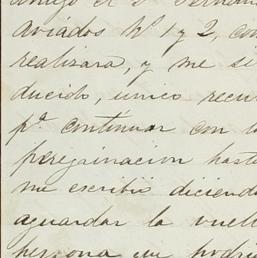 amigo el Sr Fernan
Aviados Nº 1 y 2, con
realizara, y me si
ducido, unico recu
pª continuar con la
peregrinacion hasta
me escribió diciendo
aguardar la vuelt
persona que podri